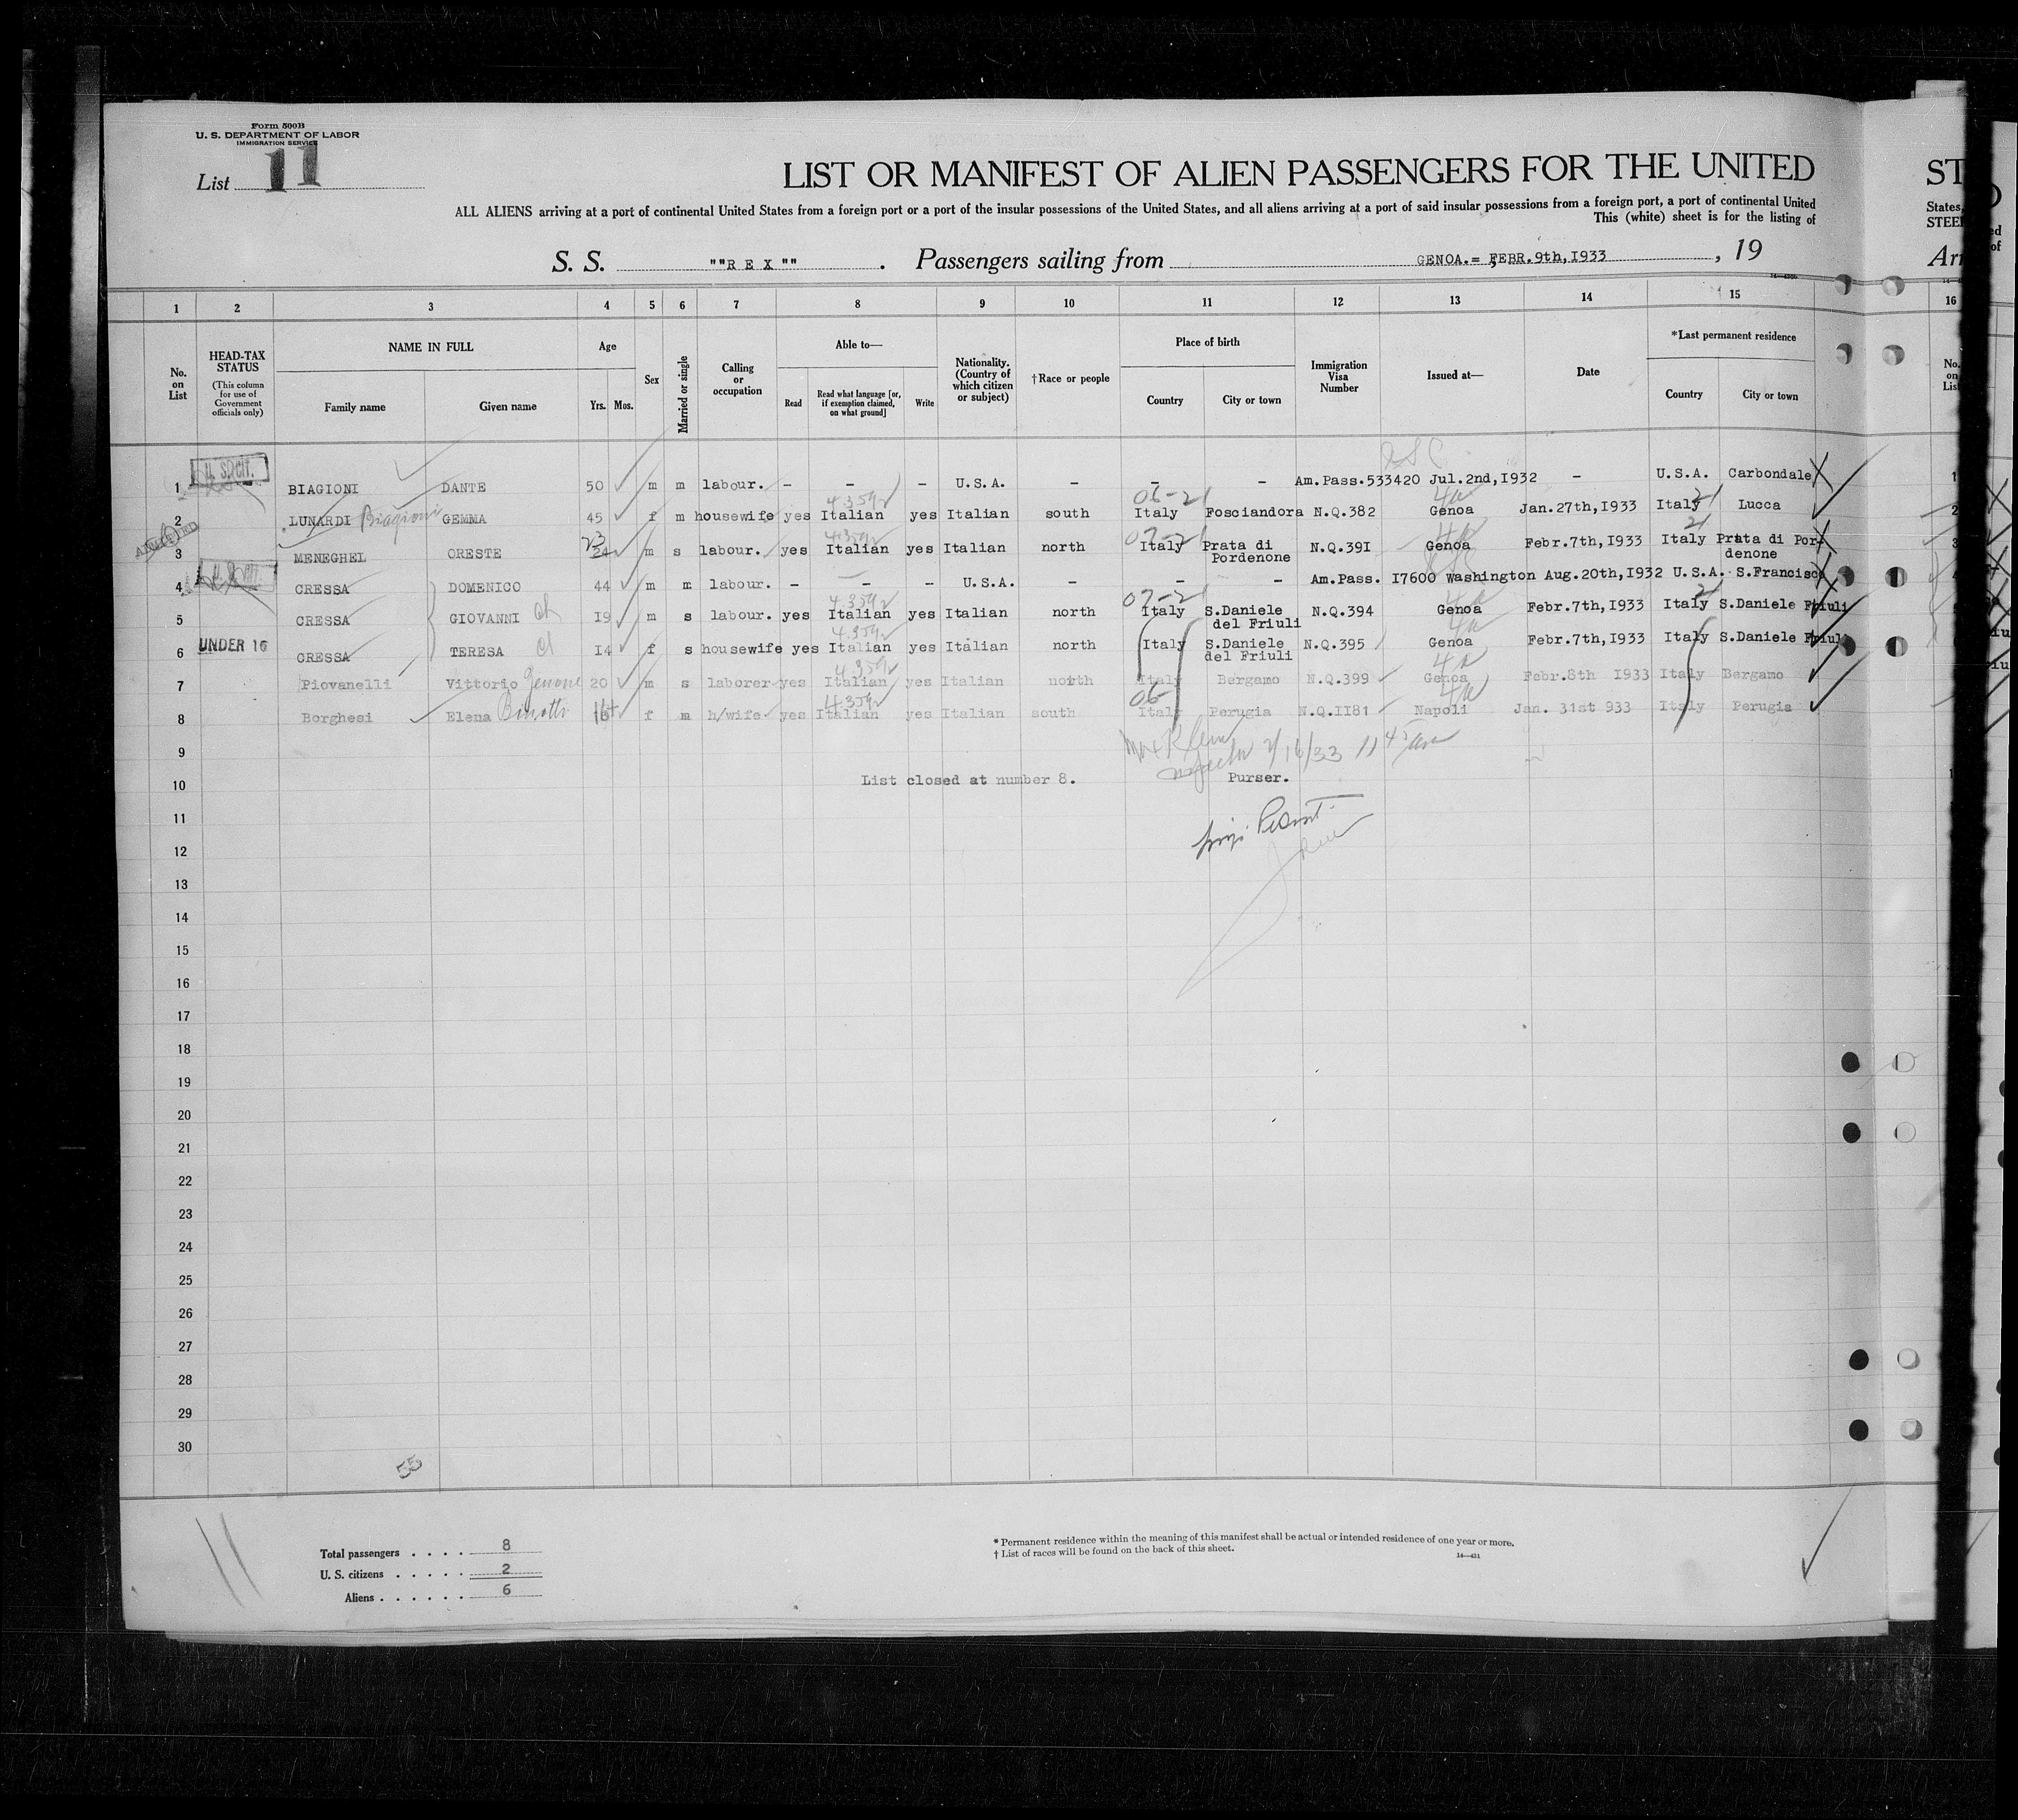 Form 500B
U. S. DEPARTMENT OF LABOR
IMMIGRATION SERVICE
List 11
LIST OR MANIFEST OF ALIEN PASSENGERS FOR THE UNITED
ALL ALIENS arriving at a port of continental United States from a foreign port or a port of the insular possessions of the United States, and all aliens arriving at a port of said insular possessions from a foreign port, a port of continental United
This (white) sheet is for the listing of
S. S. ""R E X "" . Passengers sailing from GENOA.= FEBR.9th,I933 , 19
ST
States,
STEE
Arr
1 2 3 4 5 6 7 8 9 10 11 12 13 14 15 16
No. on List
HEAD-TAX STATUS
(This column for use of Government officials only)
NAME IN FULL
Family name Given name
Age
Yrs. Mos.
Sex
Married or single
Calling or occupation
Able to—
Read
Read what language [or, if exemption claimed, on what ground]
Write
Nationality. (Country of which citizen or subject)
†Race or people
Place of birth
Country City or town
Immigration Visa Number
Issued at—
Date
*Last permanent residence
Country City or town
No. on List
1 U. S. CIT. BIAGIONI DANTE 50 m m labour. - - - U.S.A. - - - Am.Pass.533420 Jul.2nd,I932 - U.S.A. Carbondale
2 LUNARDI Biagioni GEMMA 45 f m housewife yes Italian yes Italian south Italy Fosciandora N.Q.382 Genoa Jan.27th,I933 Italy Lucca
3 MENEGHEL ORESTE 23 24 m s labour. yes Italian yes Italian north Italy Prata di Pordenone N.Q.39I Genoa Febr.7th,I933 Italy Prata di Pordenone
4 CRESSA DOMENICO 44 m m labour. - - - U.S.A. - - - Am.Pass. I7600 Washington Aug.20th,I932 U.S.A. S.Francisco
5 CRESSA GIOVANNI I9 m s labour. yes Italian yes Italian north Italy S.Daniele del Friuli N.Q.394 Genoa Febr.7th,I933 Italy S.Daniele Friuli
6 UNDER 16 CRESSA TERESA I4 f s housewife yes Italian yes Italian north Italy S.Daniele del Friuli N.Q.395 Genoa Febr.7th,I933 Italy S.Daniele Friuli
7 Piovanelli Vittorio 20 m s laborer yes Italian yes Italian north Italy Bergamo N.Q.399 Genoa Febr.8th I933 Italy Bergamo
8 Borghesi Elena f m h/wife yes Italian yes Italian south Italy Perugia N.Q.II81 Napoli Jan. 31st 933 Italy Perugia
9
10 List closed at number 8. Purser.
11
12
13
14
15
16
17
18
19
20
21
22
23
24
25
26
27
28
29
30
55
11
Total passengers . . . . 8
U. S. citizens . . . . . 2
Aliens . . . . . . 6
* Permanent residence within the meaning of this manifest shall be actual or intended residence of one year or more.
† List of races will be found on the back of this sheet.
14—431